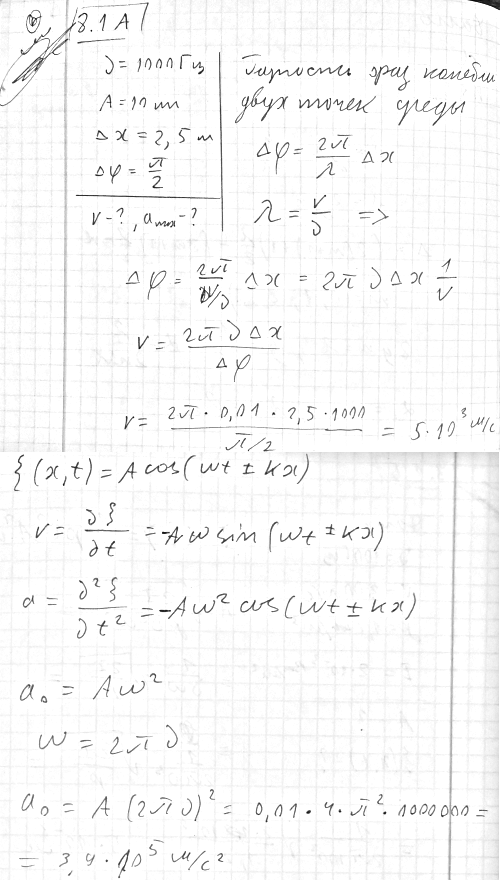 8.1 A
ν = 1000 Гц
A = 10 мм
Δx = 2,5 м
Δφ = π/2
v - ?, a_max - ?
фаз колебан
двух точек среды
Δφ = 2π/λ Δx
λ = v/ν =>
Δφ = 2π/(v/ν) Δx = 2π ν Δx 1/v
v = 2π ν Δx / Δφ
v = 2π · 0,01 · 2,5 · 1000 / (π/2) = 5·10³ м/с
ξ(x,t) = A cos(ωt ± kx)
v = ∂ξ/∂t = -Aω sin(ωt ± kx)
a = ∂²ξ/∂t² = -Aω² cos(ωt ± kx)
a₀ = Aω²
ω = 2πν
a₀ = A (2πν)² = 0,01 · 4 · π² · 1000000 =
= 3,4 · 10⁵ м/с²